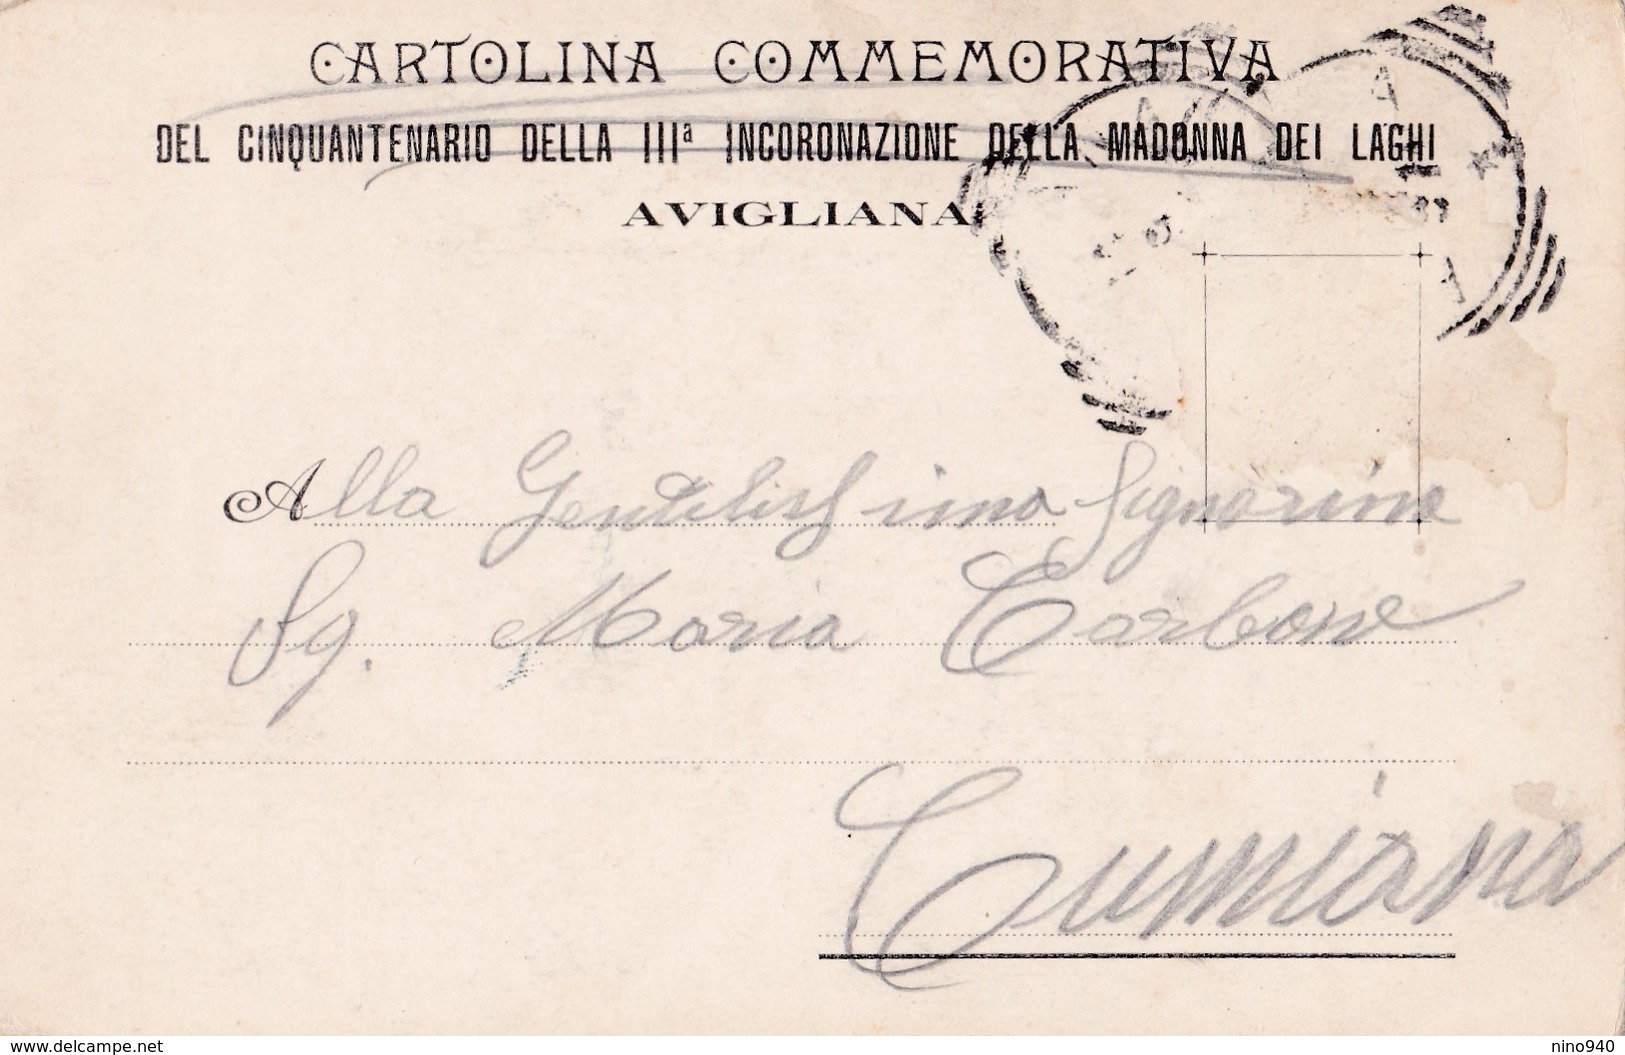 CARTOLINA COMMEMORATIVA
DEL CINQUANTENARIO DELLA IIIª INCORONAZIONE DELLA MADONNA DEI LAGHI
AVIGLIANA
Alla Gentilissima Signorina
Sg. Maria Carbone
Cumiana
www.delcampe.net
nino940